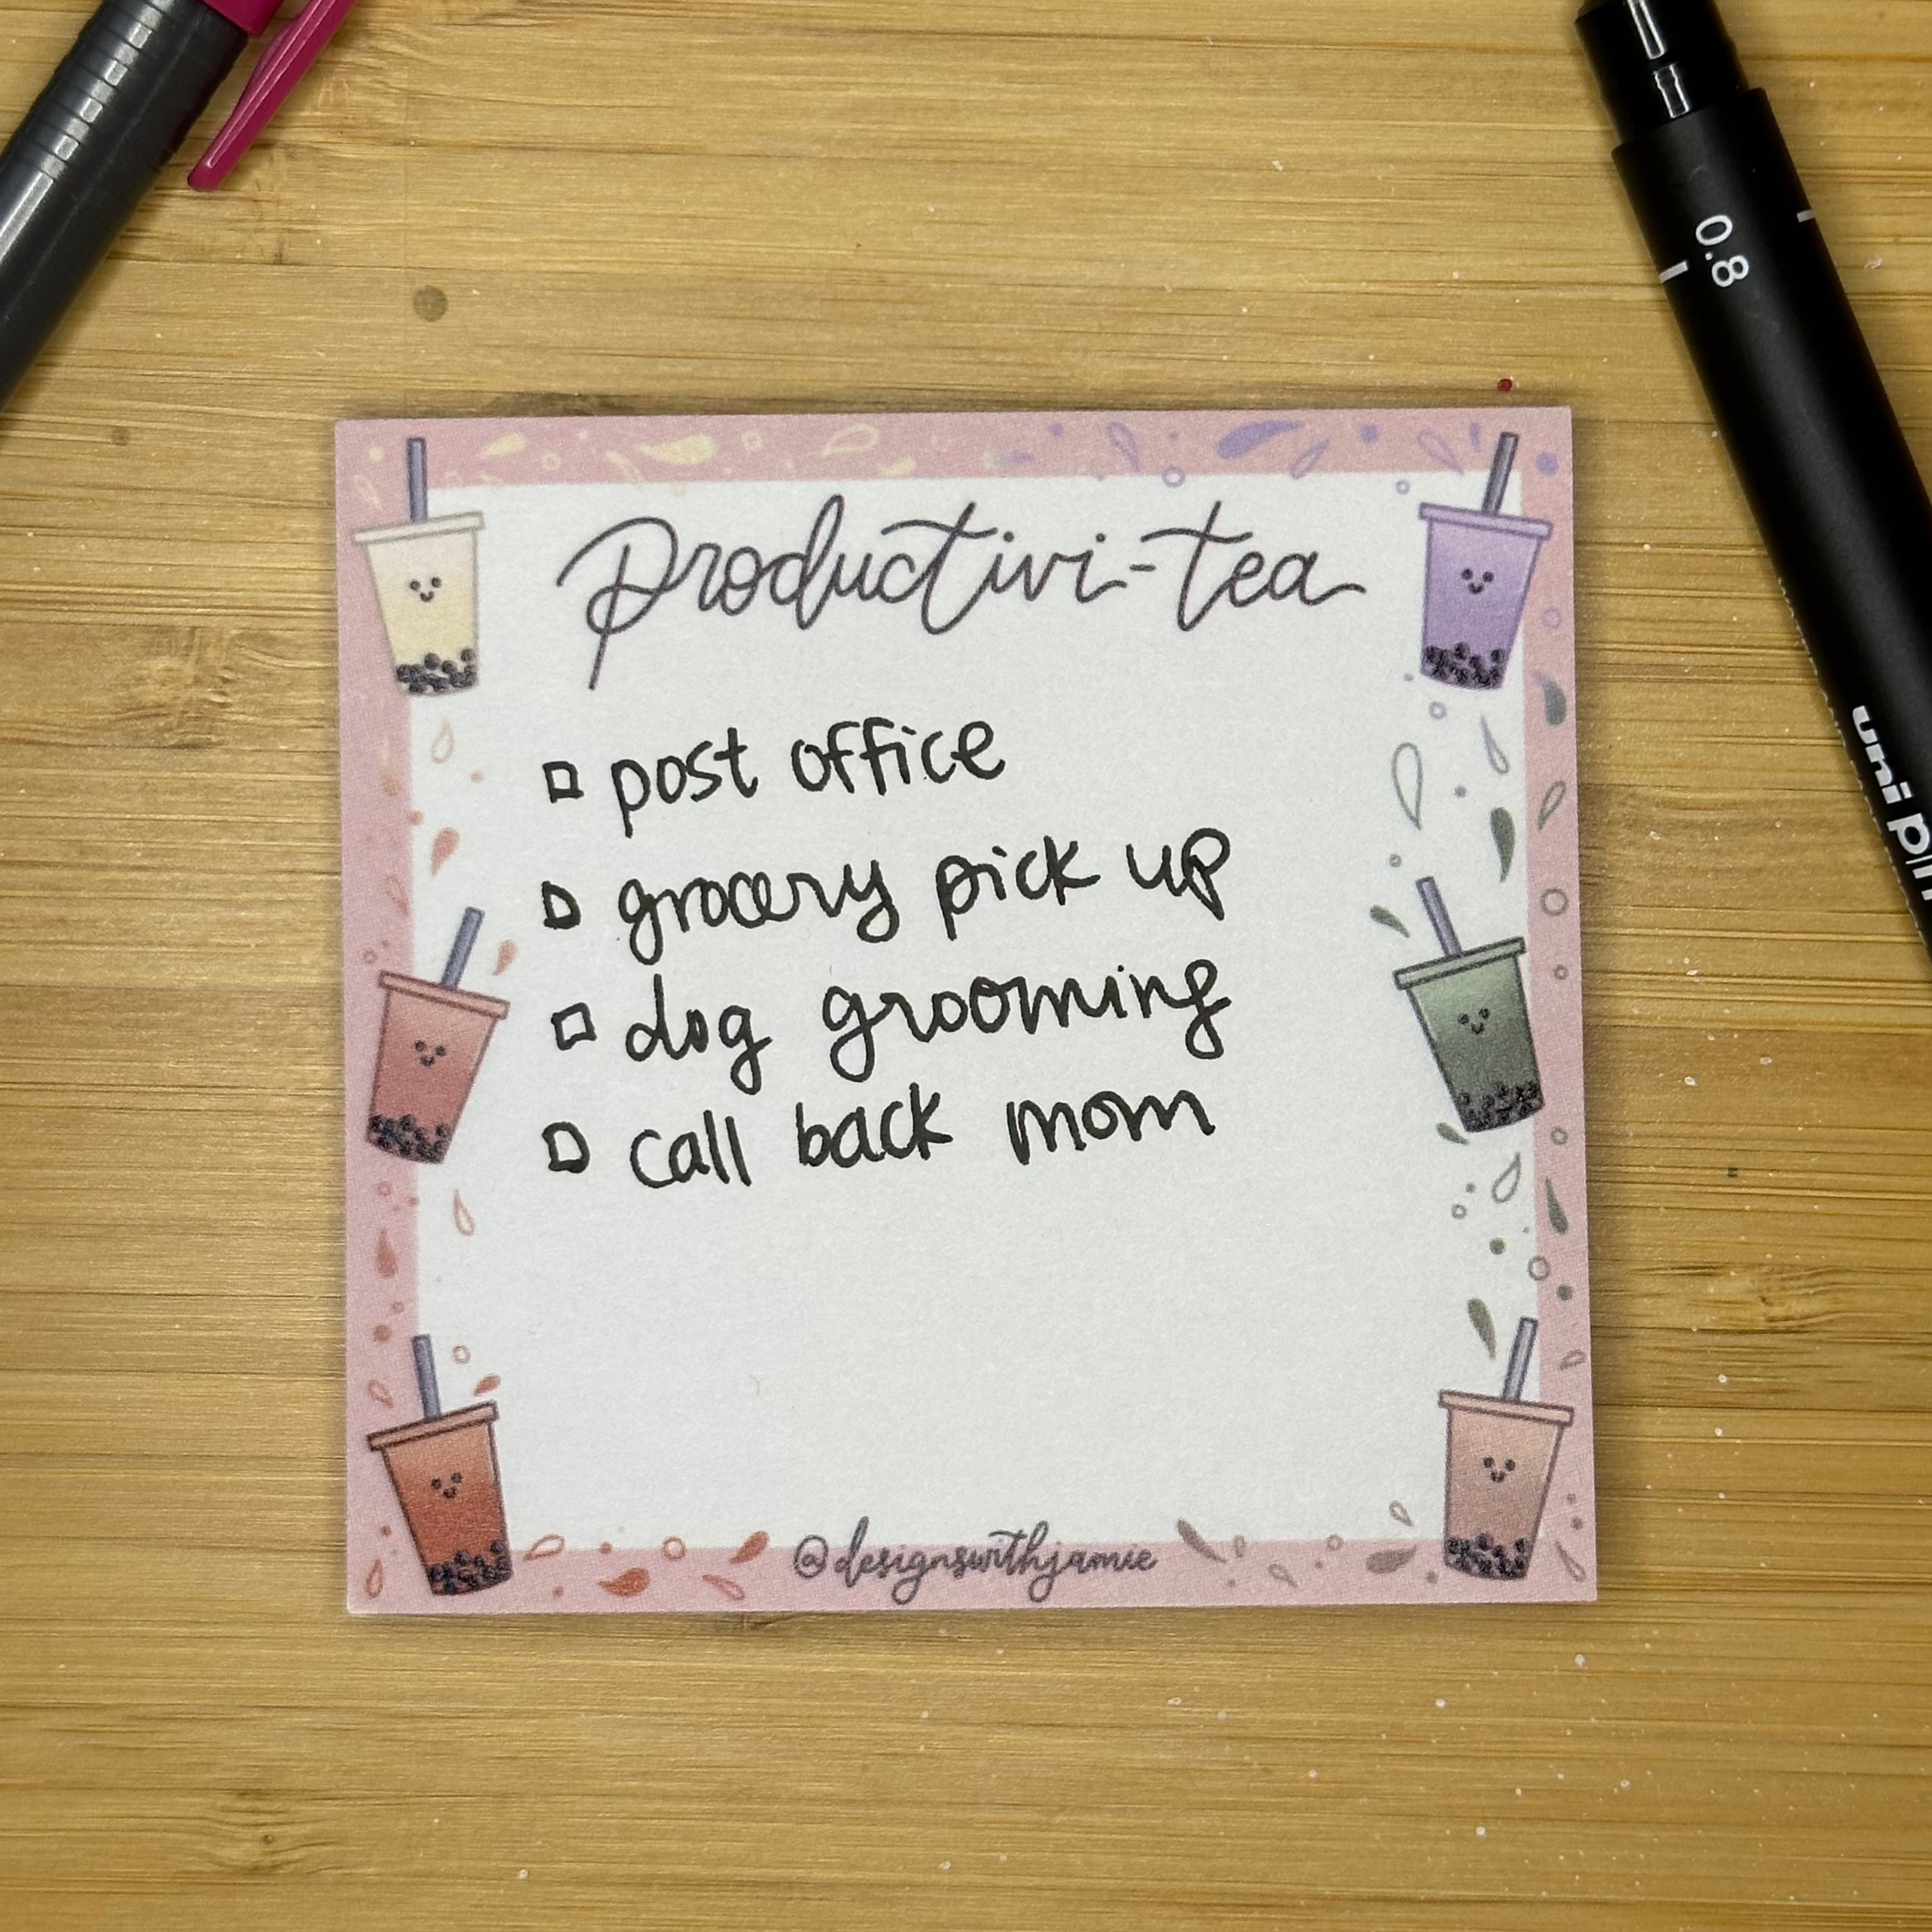 0.8
uni pin
productivi-tea
post office
grocery pick up
dog grooming
call back mom
@designswithjamie